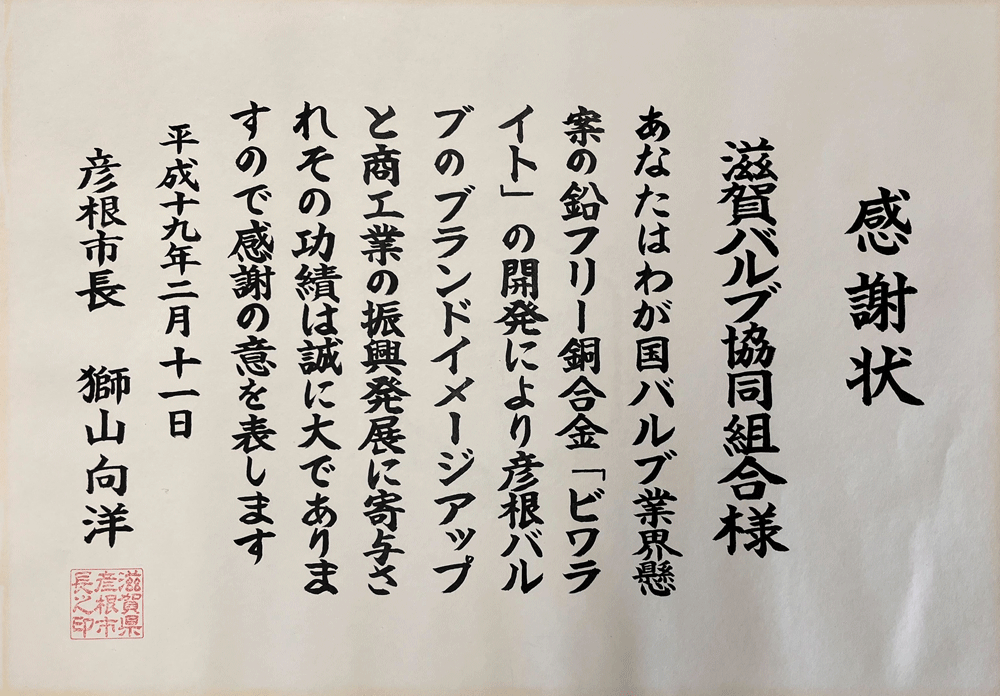 感謝状
滋賀バルブ協同組合様
あなたはわが国バルブ業界懸
案の鉛フリー銅合金「ビワラ
イト」の開発により彦根バル
ブのブランドイメージアップ
と商工業の振興発展に寄与さ
れその功績は誠に大でありま
すので感謝の意を表します
平成十九年二月十一日
彦根市長 獅山向洋
滋賀県
彦根市
長之印